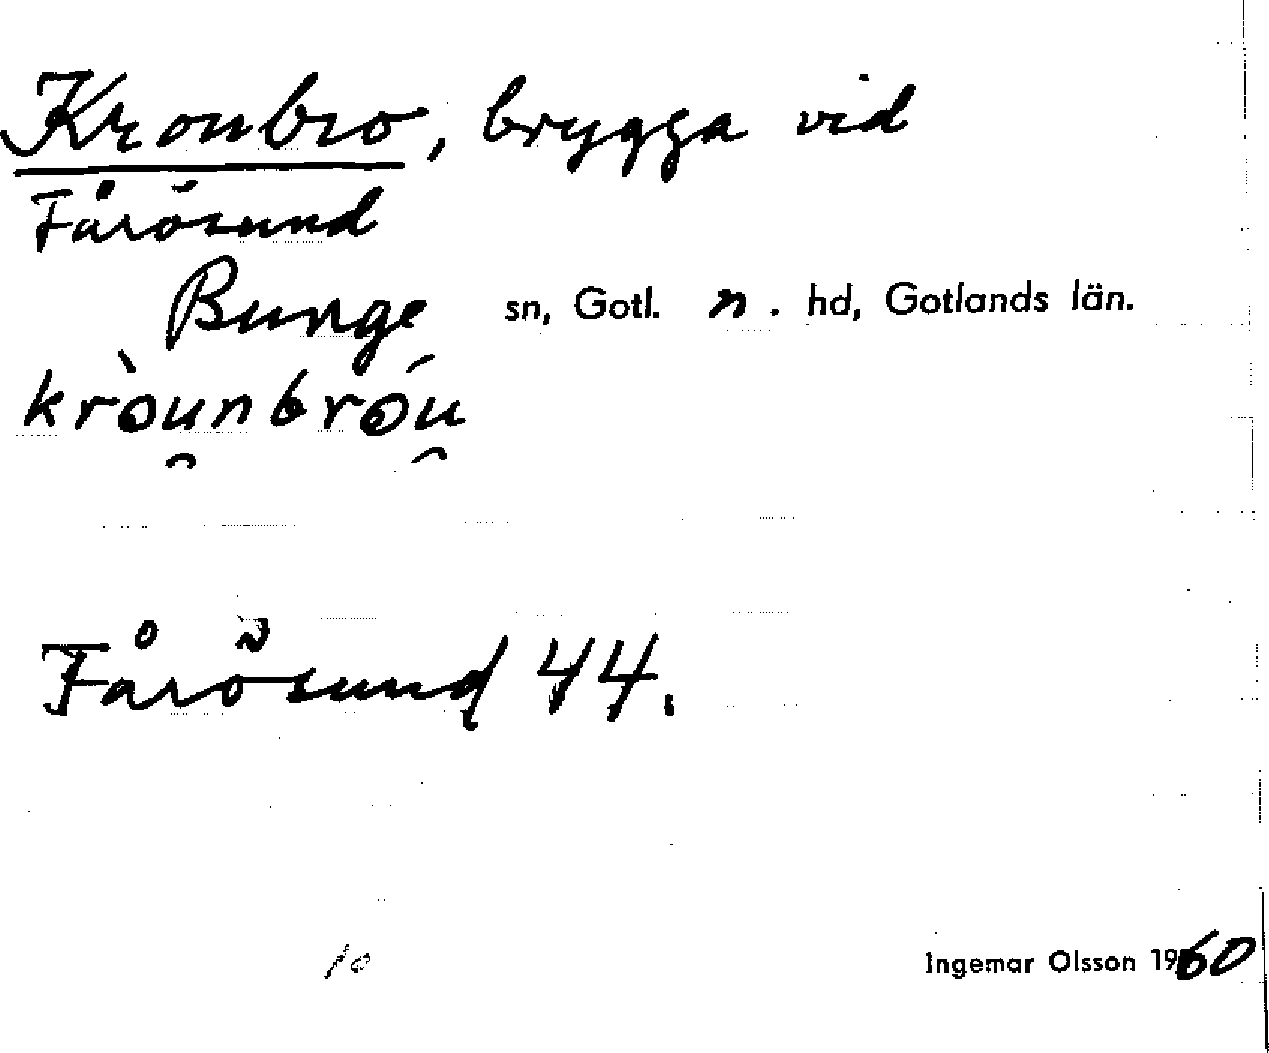 Kronbro, brygga vid
Fårösund
Bunge sn, Gotl. n. hd, Gotlands län.
kròu̯nbróu̯
Fårösund 44.
10
Ingemar Olsson 1960